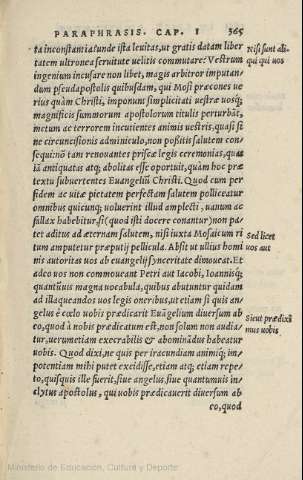 PARAPHRASIS. CAP. I 365
ta inconstantia? unde ista leuitas, ut gratis datam liber
tatem ultronea seruitute uelitis commutare? Vestrum
ingenium incusare non libet, magis arbitror imputan-
dum pseudapostolis quibusdam, qui Mosi præcones ue
rius quàm Christi, imponunt simplicitati uestræ uosq́;
magnificis summorum apostolorum titulis perturbãt,
metum ac terrorem incutientes animis uestris, quasi si
ne circuncisionis adminiculo, non poßitis salutem con-
sequi: nõ tam renouantes priscæ legis ceremonias, quas
iã antiquatas atq; abolitas esse oportuit, quàm hoc præ
textu subuertentes Euangeliũ Christi. Quod cum per
fidem ac uitæ pietatem perfectam salutem polliceatur
omnibus quicunq; uoluerint illud amplecti, uanum ac
fallax habebitur, si (quod isti docere conantur) non pa-
tet aditus ad æternam salutem, nisi iuxta Mosaicum ri
tum amputetur præputij pellicula. Absit ut ullius homi
nis autoritas uos ab euangelij synceritate dimoueat. Et
adeo uos non commoueant Petri aut Iacobi, Ioannisq́;
quantũuis magna uocabula, quibus abutuntur quidam
ad illaqueandos uos legis oneribus, ut etiam si quis an-
gelus è cœlo uobis prædicarit Euãgelium diuersum ab
eo, quod à nobis prædicatum est, non solum non audia-
tur, uerumetiam execrabilis & abominãdus habeatur
uobis. Quod dixi, ne quis per iracundiam animiq́; im-
potentiam mihi putet excidisse, etiam atq; etiam repe-
to, quisquis ille fuerit, siue angelus, siue quantumuis in-
clytus apostolus, qui uobis prædicauerit diuersum ab
eo, quod
Nisi sunt ali-
qui qui uos
Sed licet
uos aut
Sicut prædixi
mus uobis
Ministerio de Educación, Cultura y Deporte